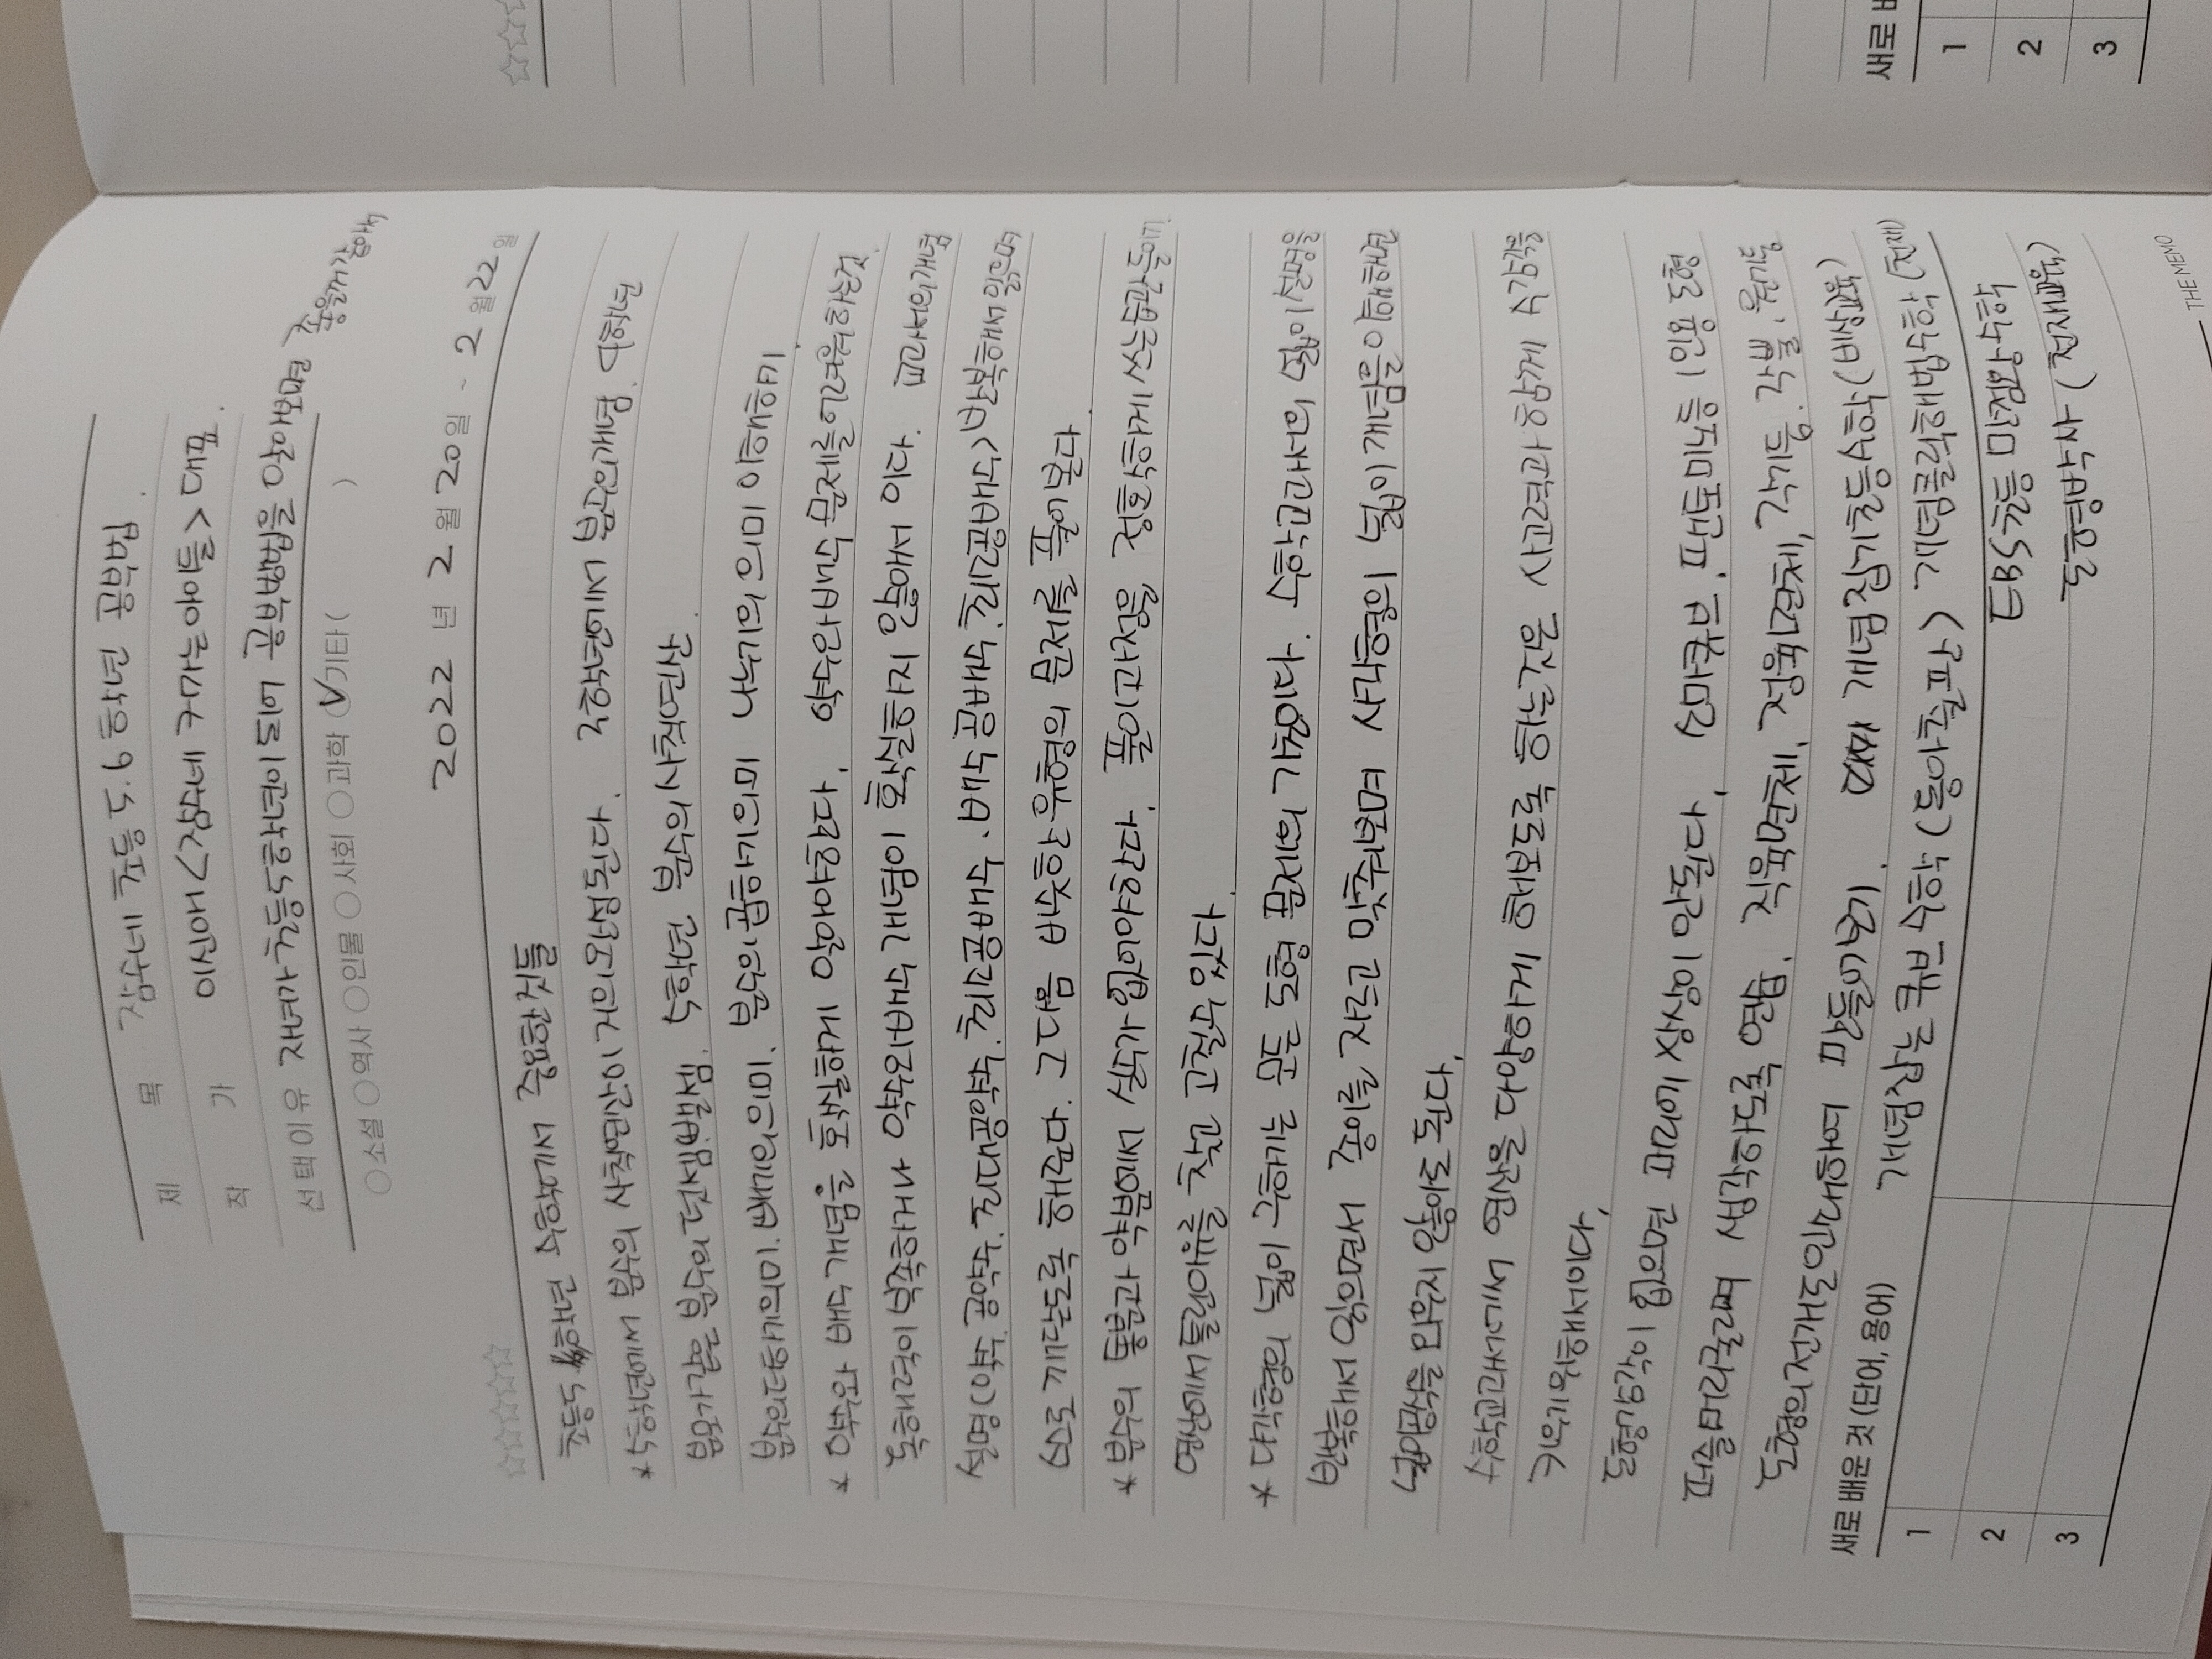 제 목 잠수네 초등 5.6 학년 공부법.
작 가 이신애 <잠수네 커가는 아이들> 대표.
선택이유 자녀가 초등5학년이 되어 공부방법을 알아보면 좋을꺼 같아서
소설 역사 인물 사회 과학 기타 ( )
2022 년 2 월 20 일 ~ 2 월 22 일
초등5 학년 수학에서 중요한것들
* 5학년에서 분수의 사칙연산이 거의 완성된다. 3학년에서 분수의개념. 4학년
분모가 같은 분수의 덧셈.뺄셈. 5학년 분수의 사칙연산.
분수의더하기의미. 빼기의 의미. 분수의 곱하기의미 나누기의 의미 이해하기.
* 약수와 배수 개념을 확실하게 알아야한다. 약수와배수 문제를 어려워 하는것.
독해력이 부족하거나 약수와배수 개념이 확실하지 않애서 이다. 교과서의개념
설명(약수. 공약수. 최대공약수. 최소공배수. 배수 공배수. 최고공배수) 반복해서 읽으며
스스로 깨닫도록 해준다. 그다음 비슷한 유형의 문제를 풀어본다.
* 분수의 통분과 약분에서 실수가 없어야한다. 풀이과정을 정확하게 쓰는습관 들이기.
연산에서 틀린이유를 찾고 고칠수 있다.
* 다각형의 넓이 구하기는 모든 도형 문제의 기초이다. 수학교과서의 넓이설명을
반복해서 읽으면서 종이를 자르고 맞춰보며 사각형의 넓이 개념을 이해하면
넓이공식을 외우지 않아도 된다.
수학교과서에서 연산을 다양하게 해보도록 하는것은 사고력과 함께 수감각을
키우기위해서이다.
도형감각이 없으면 머리에 상상이 안된다. 소마큐브, 팬토미노등 1인용 도형
퍼즐머리굴리며 생각하도록 연습. 직육면체, 정육면체, 각기둥. 각뿔. 원기둥
도형의 전개도 하여 만들어보기. 개념잡기초등수학 (비상교육)
새로 배운 것 (단어, 용어) 개념잡는 큐브수학 (동아출판) 개념클릭해법수학 (천재)
1
EBS초등 만점왕수학
2
도형박사 (천재교육)
3
THE MEMO
새로 배
1
2
3